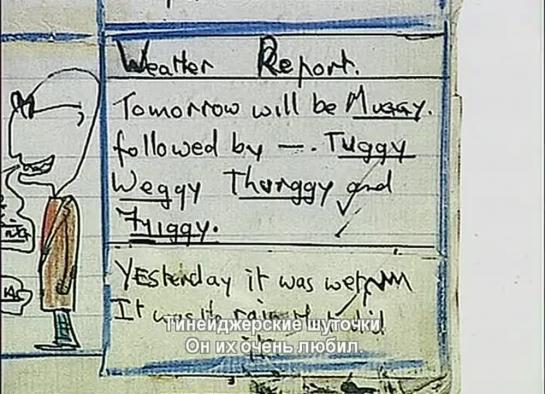 Weather Report.
Tomorrow will be Muggy.
followed by —. Tuggy
Weggy Thurggy and
Friggy.
Yesterday it was wet
It was
тинейджерские шуточки,
Он их очень любил.